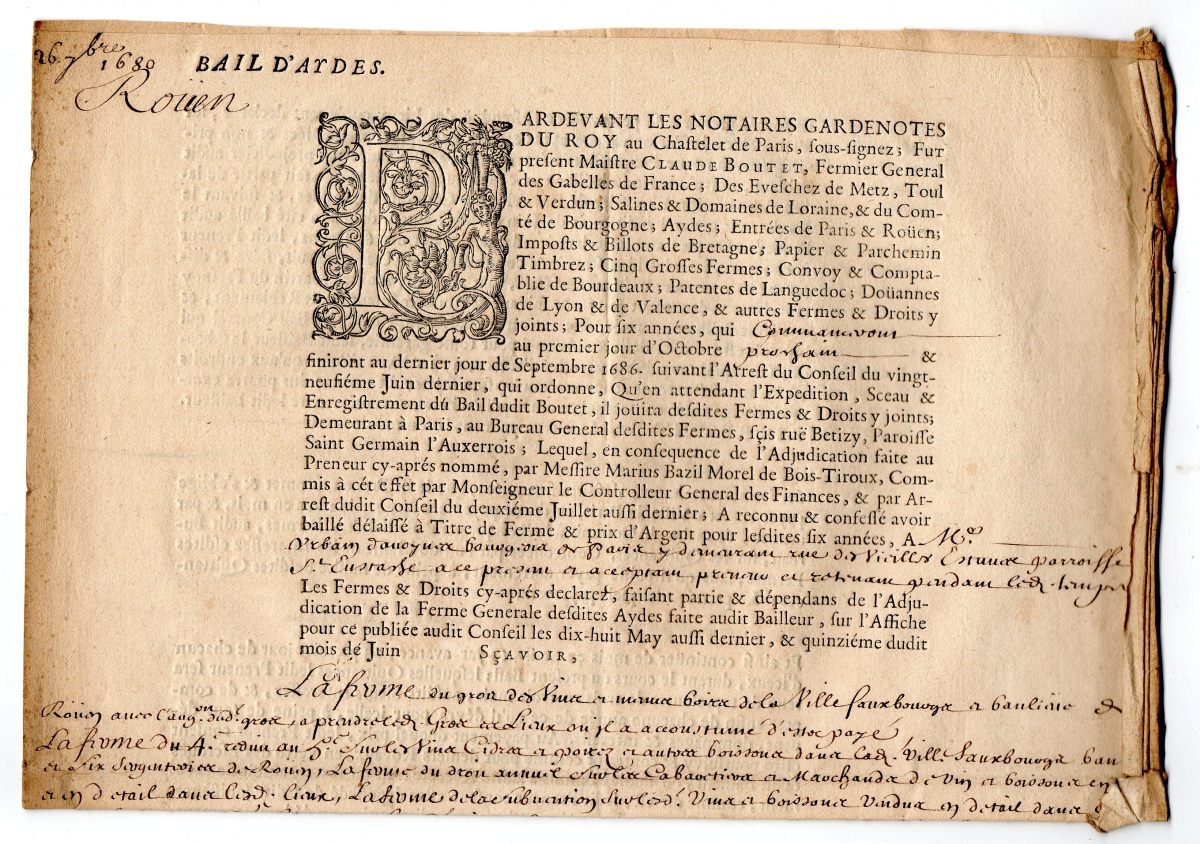 26 7bre
1680
BAIL D'AYDES.
Roüen
PARDEVANT LES NOTAIRES GARDENOTES
DU ROY au Chastelet de Paris, sous-signez; FUT
present Maistre CLAUDE BOUTET, Fermier General
des Gabelles de France; Des Eveschez de Metz, Toul
& Verdun; Salines & Domaines de Loraine, & du Com-
té de Bourgogne; Aydes; Entrées de Paris & Roüen;
Imposts & Billots de Bretagne; Papier & Parchemin
Timbrez; Cinq Grosses Fermes; Convoy & Compta-
blie de Bourdeaux; Patentes de Languedoc; Doüannes
de Lyon & de Valence, & autres Fermes & Droits y
joints; Pour six années, qui Commanceront
au premier jour d'Octobre prochain &
finiront au dernier jour de Septembre 1686. suivant l'Arrest du Conseil du vingt-
neufiéme Juin dernier, qui ordonne, Qu'en attendant l'Expedition, Sceau &
Enregistrement du Bail dudit Boutet, il joüira desdites Fermes & Droits y joints;
Demeurant à Paris, au Bureau General desdites Fermes, sçis ruë Betizy, Paroisse
Saint Germain l'Auxerrois; Lequel, en consequence de l'Adjudication faite au
Preneur cy-aprés nommé, par Messire Marius Bazil Morel de Bois-Tiroux, Com-
mis à cét effet par Monseigneur le Controlleur General des Finances, & par Ar-
rest dudit Conseil du deuxiéme Juillet aussi dernier; A reconnu & confessé avoir
baillé délaissé à Titre de Ferme & prix d'Argent pour lesdites six années, A Me
Urbain bourgeois de Paris y demeurant rue des Vieilles Estuves parroisse
St Eustache a ce present et acceptant preneur et retenant pendant led. temps
Les Fermes & Droits cy-aprés declarez, faisant partie & dépendans de l'Adju-
dication de la Ferme Generale desdites Aydes faite audit Bailleur, sur l'Affiche
pour ce publiée audit Conseil les dix-huit May aussi dernier, & quinziéme dudit
mois de Juin SÇAVOIR,
La ferme du gros des Vins et menus boires de la Ville fauxbourgs et banlieue de
Roüen avec l'augon dud. gros, a prendre led. Gros es Lieux ou il a accoustumé d'estre payé,
La ferme du 4e reduit au 5e sur les Vins Cidres et poirez et autres boissons dans lad. Ville fauxbourgs ban
et six sergenteries de Roüen, La ferme du droit annuel sur les Cabaretiers et Marchands de Vin et boissons en
et en detail dans lesd. lieux, La ferme de la subvention sur lesd. Vins et boissons vendus en detail dans